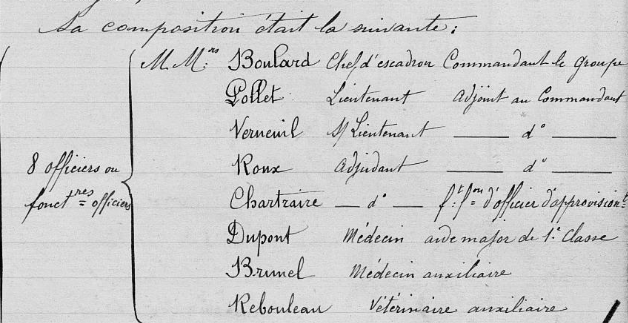 Sa composition était la suivante :
M M.rs Boulard Chef d'escadron Commandant le groupe
Pollet Lieutenant Adjoint au Commandant
Verneuil S/Lieutenant — d° —
8 officiers ou Roux Adjudant — d° —
fonct.res officiers Chartraire — d° — f.t f.on d'officier d'approvision.t
Dupont Médecin aide major de 1.e Classe
Brunel Médecin auxiliaire
Rebouleau Vétérinaire auxiliaire